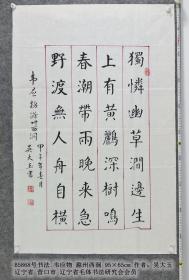 獨憐幽草澗邊生
上有黃鸝深樹鳴
春潮帶雨晚来急
野渡無人舟自橫
韋應物滁州西澗
甲子年春月
吴大玉書
B5868号书法 韦应物 滁州西涧 95×65cm 作者：吴大玉
辽宁省 营口市 辽宁省毛体书法研究会会员